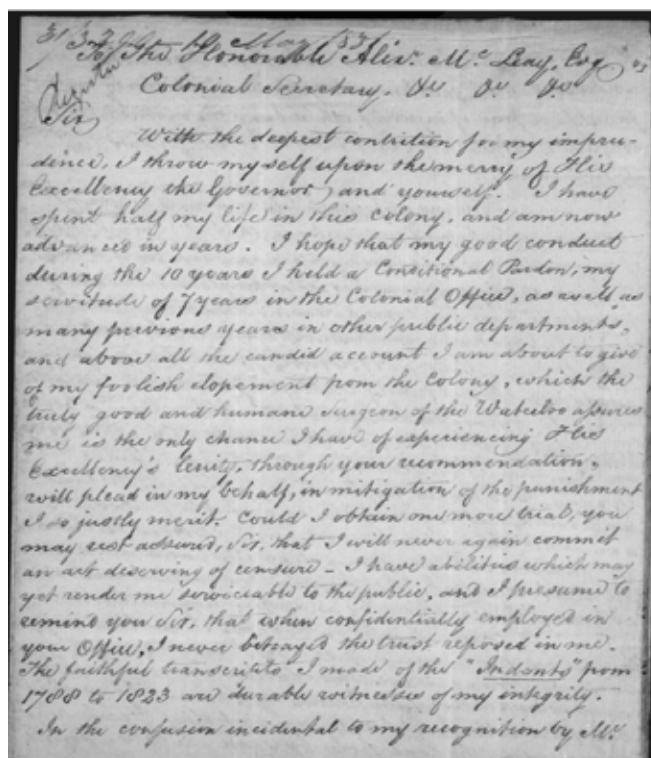 To The Honorable Alexr. McLeay, Esqr.
Colonial Secretary. &c &c &c
Register
Sir,
With the deepest contrition for my impru-
dence, I throw myself upon the mercy of His
Excellency the Governor, and yourself. I have
spent half my life in this colony, and am now
advanced in years. I hope that my good conduct
during the 10 years I held a Conditional Pardon, my
servitude of 7 years in the Colonial Office, as well as
many previous years in other public departments,
and above all the candid account I am about to give
of my foolish elopement from the Colony, which the
truly good and humane Surgeon of the Waterloo assures
me is the only chance I have of experiencing His
Excellency's lenity, through your recommendation,
will plead in my behalf, in mitigation of the punishment
I so justly merit. Could I obtain one more trial, you
may rest assured, Sir, that I will never again commit
an act deserving of censure - I have abilities which may
yet render me serviceable to the public, and I presume to
remind you Sir, that when confidentially employed in
your Office, I never betrayed the trust reposed in me.
The faithful transcripts I made of the "Indents" from
1788 to 1823 are durable witnesses of my integrity.
In the confusion incidental to my recognition by Mr.